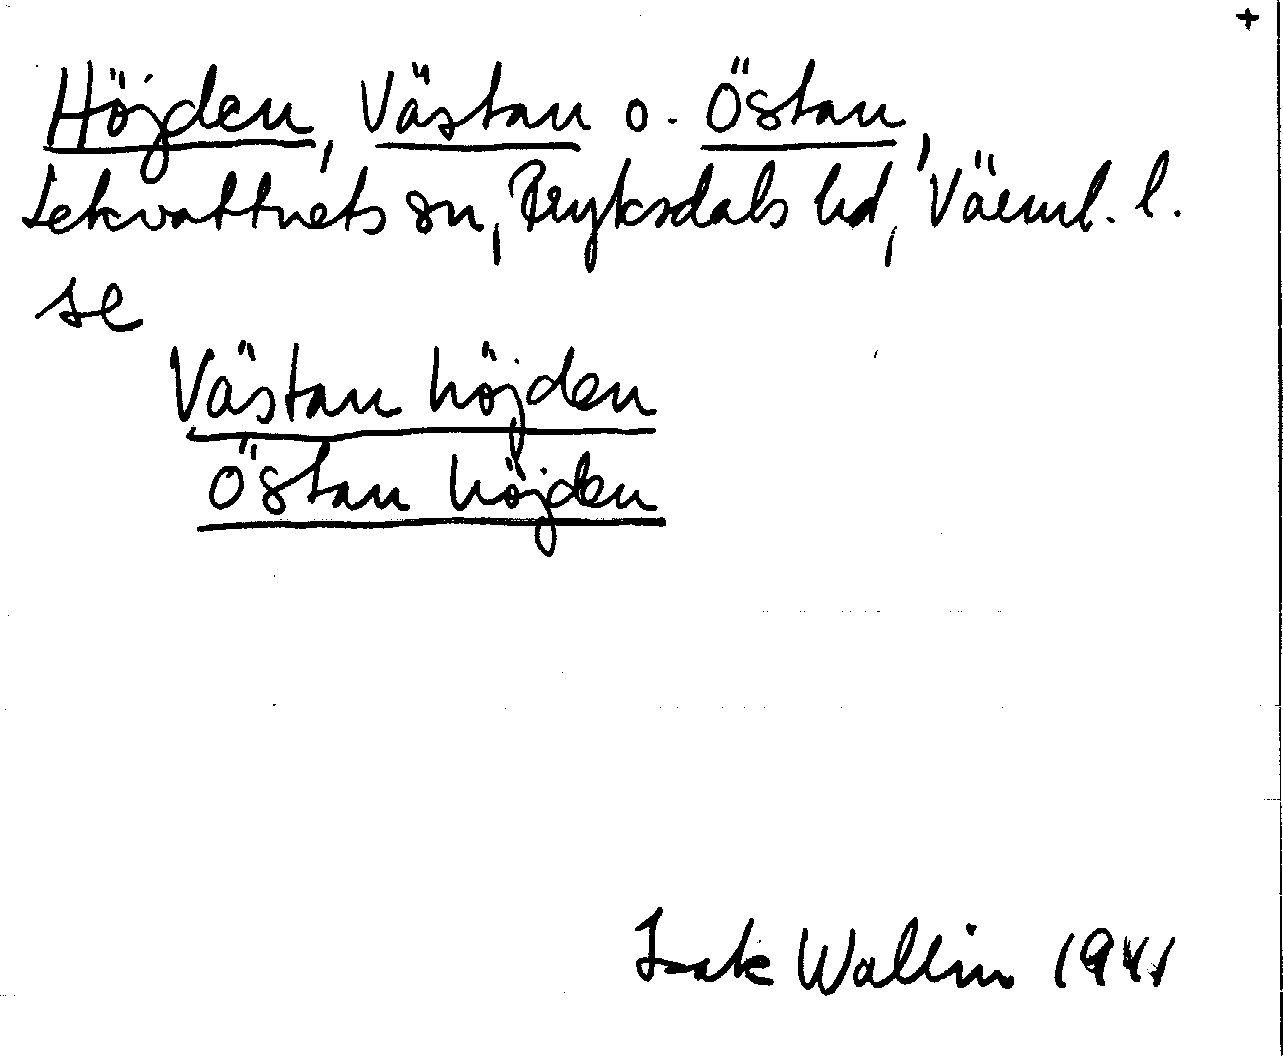 +
Höjden, Västan o. Östan,
Lekvattnets sn, Fryksdals hd, Värml. l.
se
Västan höjden
Östan höjden
Isak Wallin 1941